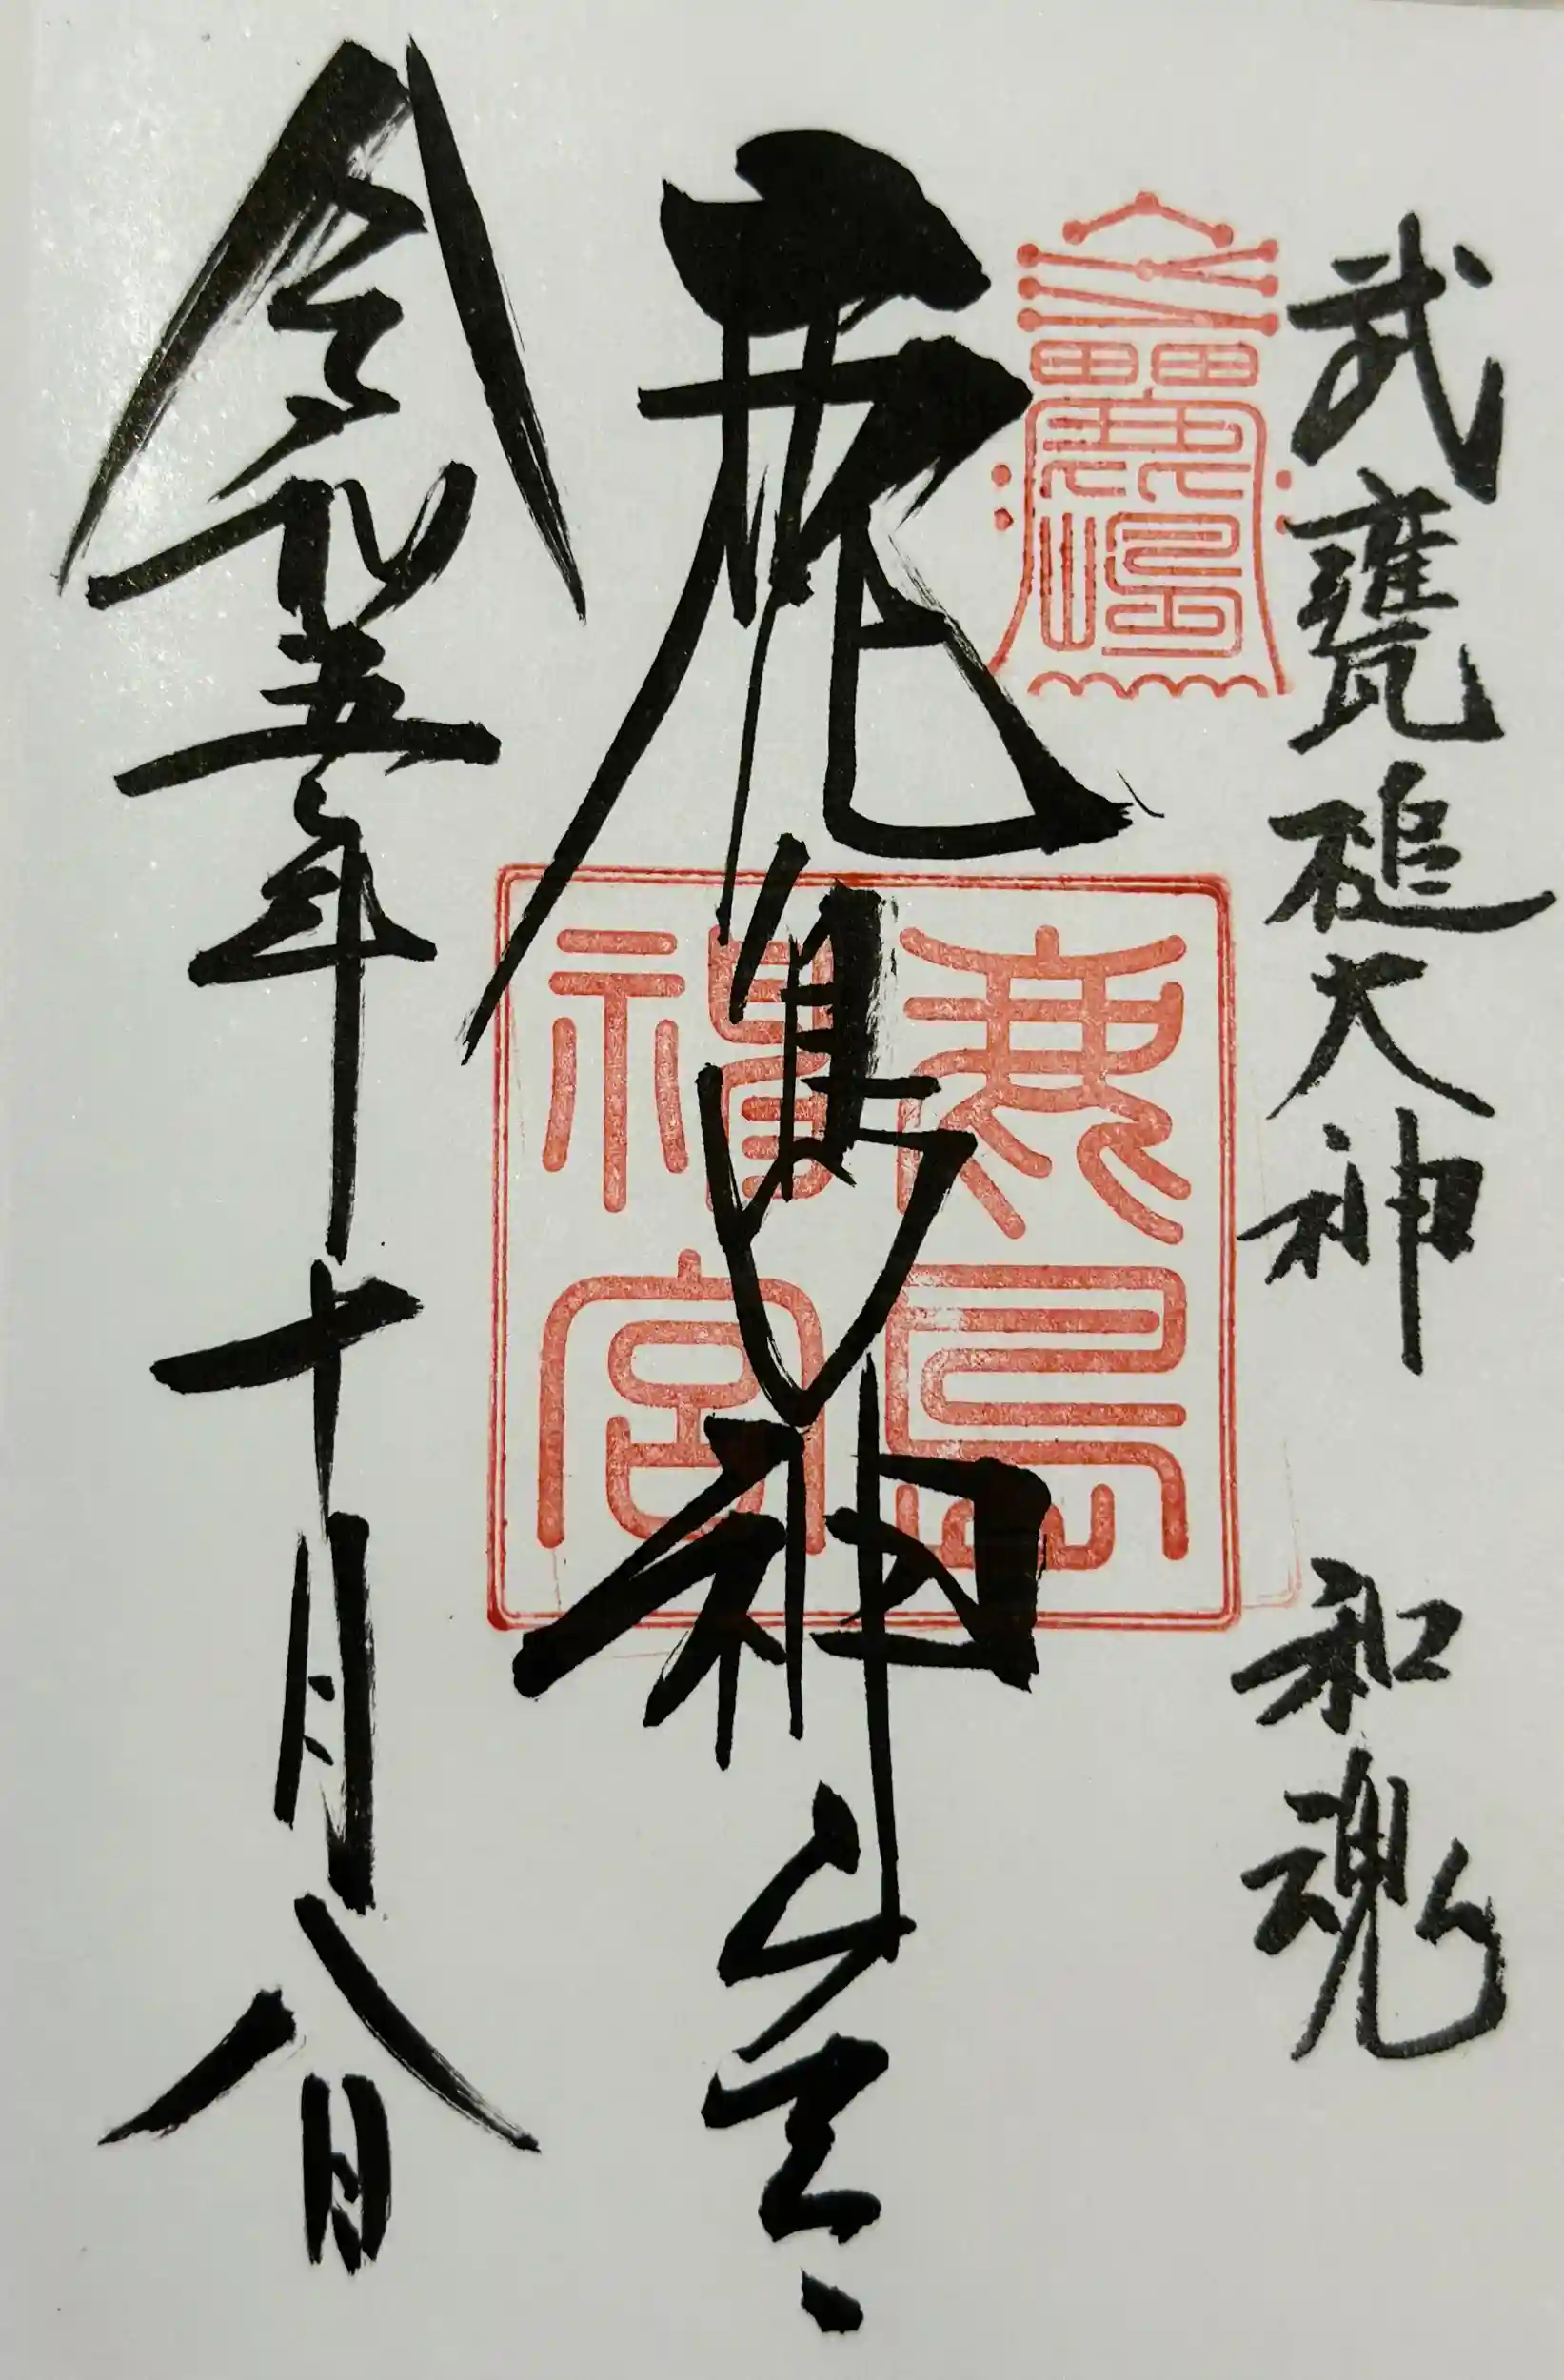 武甕槌大神 和魂
鹿島神宮
鹿島神宮
令和五年十月八日